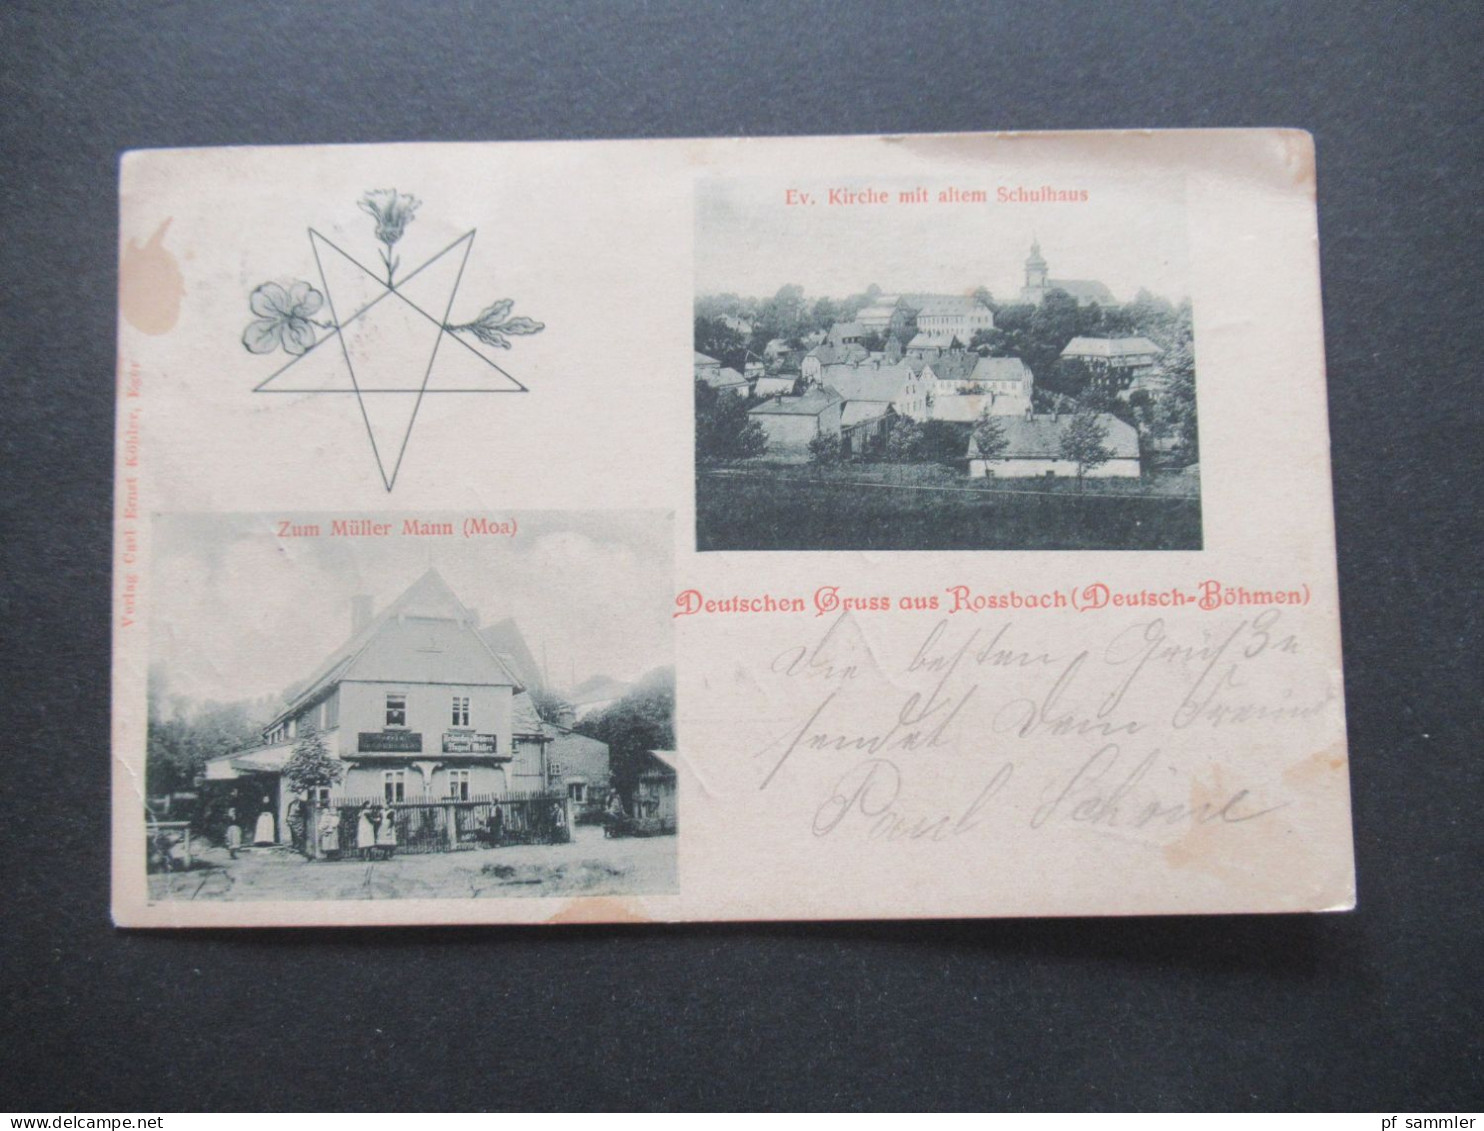 Ev. Kirche mit altem Schulhaus
Verlag Carl Ernst Köhler, Eger
Zum Müller Mann (Moa)
August Müller
Deutschen Gruss aus Rossbach (Deutsch-Böhmen)
Die besten Grüße
sendet Dein Freund
Paul Schöne
www.delcampe.net
pf_sammler